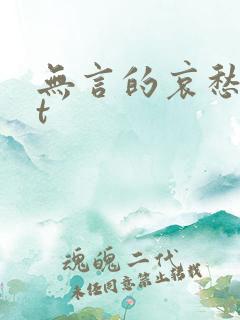 無言的哀愁
t
魂魄二代
未任同意禁止轉載